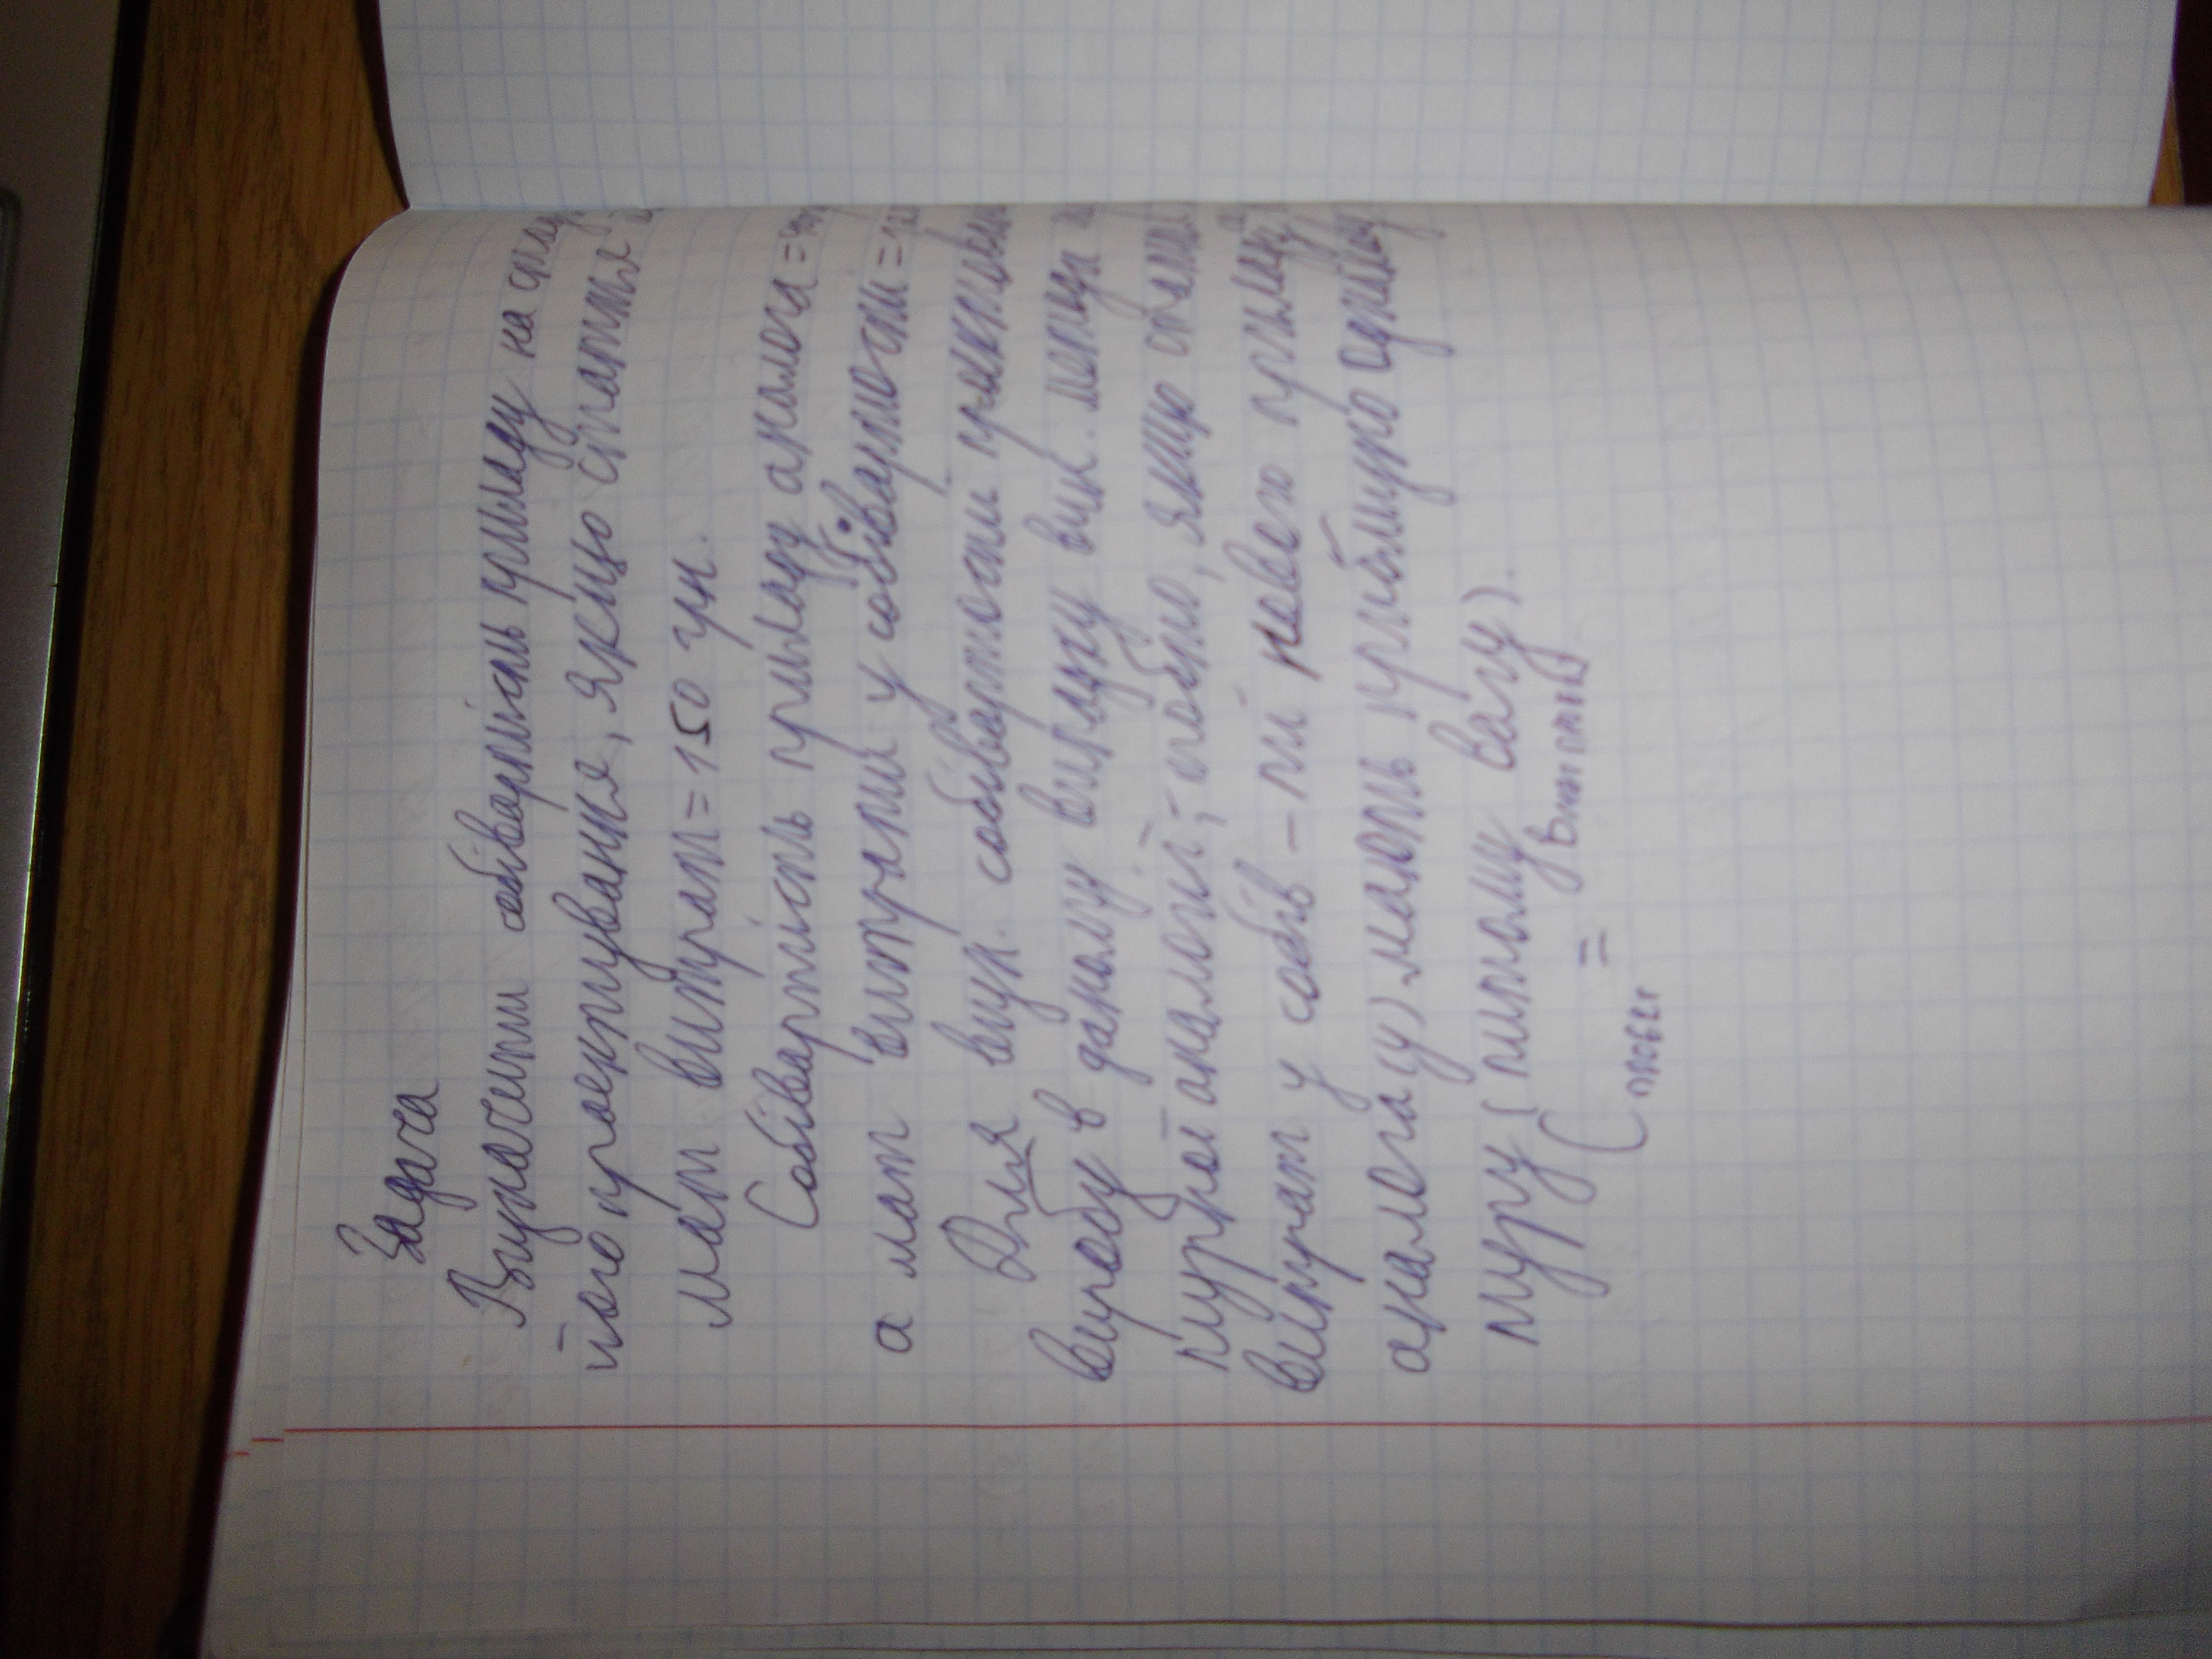 Задача
Визначити собівартість приладу на стад
його проектування, якщо стаття
мат. витрат = 150 грн.
Собівартість приладу аналога =
а мат витрати у собівартости =
Для визн. собівартости проектован
виробу в даному випадку вик. метод
питомої аналогії, -стобто, якщо
витрат у собів-ти нового приладу
аналога (у) мають приблизно однакову
туру (питому вагу).
C проект = Вмат